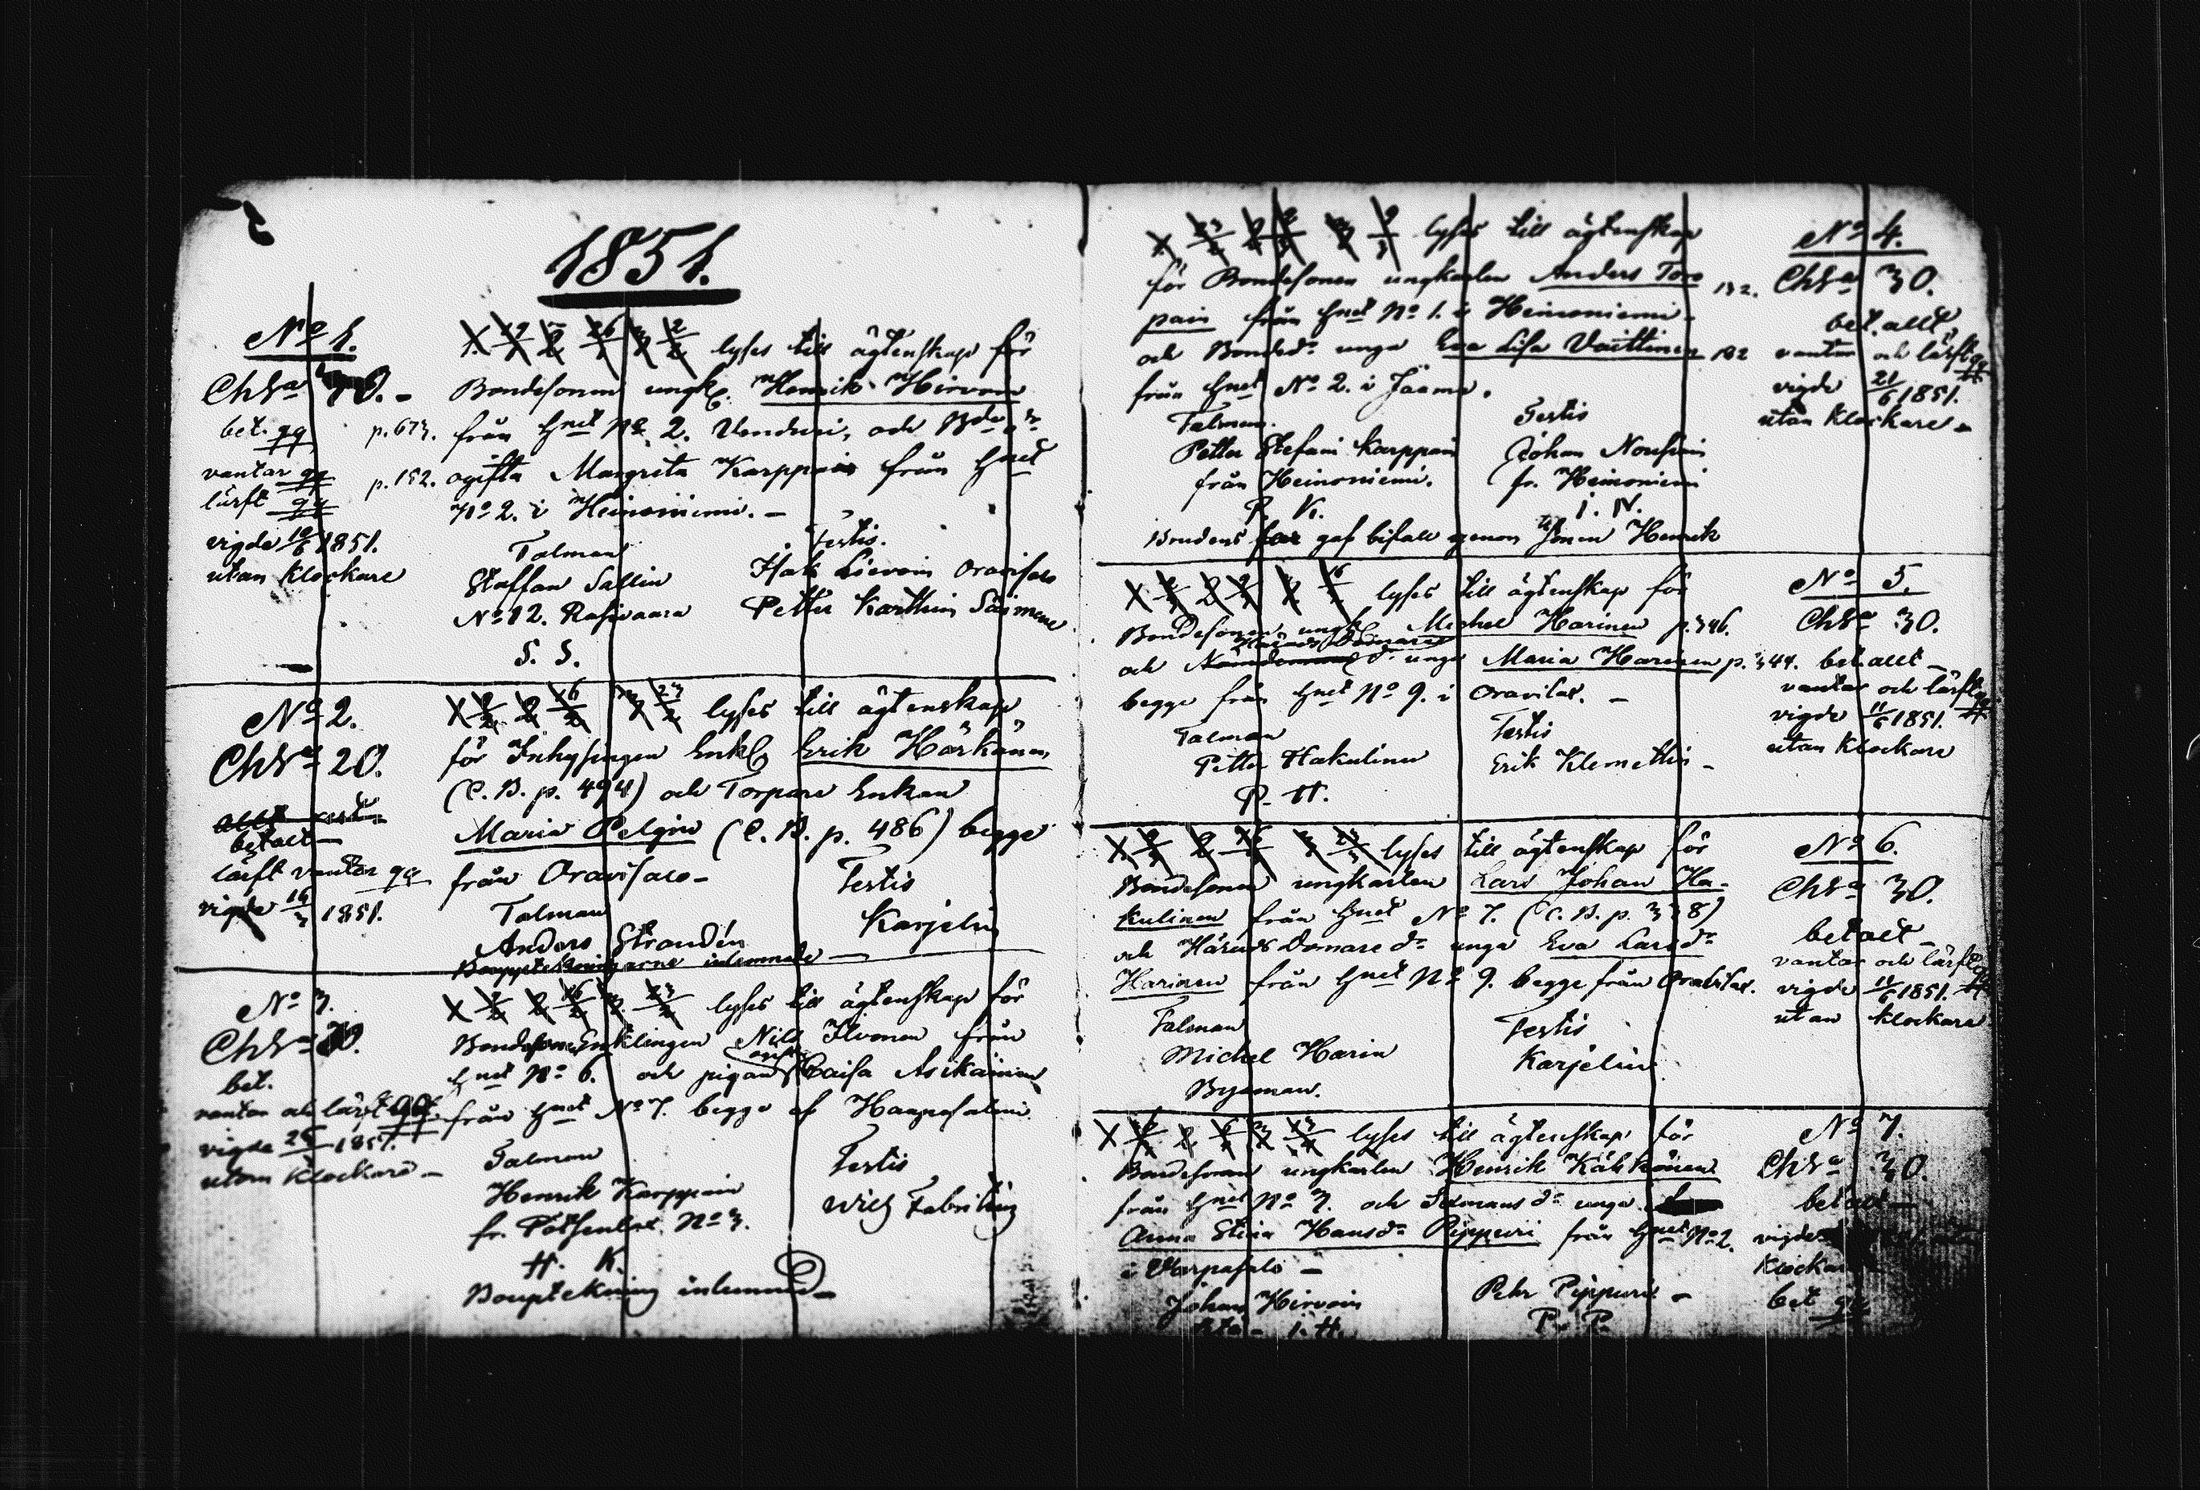 1851.
No 1.
Chsa 30. -
bet. qq
vantar qq
lärft qq
vigde 10/6 1851.
utan klockare
1. 19/1 2. 26/1 3. 2/2 lyses till ägtenskap för
Bondesonen ungk. Henrik Hirvonen
p. 673. från Hnet No 2. Vonduri, och Bde dr
p. 152. ogifta Margreta Karppain från Hnet
No 2. i Heinoniemi. -
Talman
Staffan Sallin
No 12. Rasivaara
S. S.
Testis.
Isak Lievoin Oravisalo
Petter Karttuin
No 2.
Chsa 20.
betalt -
lärft vantar qq
vigde 16/3 1851.
1 9/2 2 16/2 3 23/2 lyses till ägtenskap
för Inhysingen Enkl. Erik Härkänen
(C. B. p. 494) och Torpare Enkan
Maria Pelgin (C. B. p. 486) begge
från Oravisalo -
Talman
Anders Strandén
Bouppteckningarne inlemnade -
Testis
Karjelin
No 3.
Chsa
bet.
vantar och lärft qq
vigde 1851.
utom klockare -
1 9/2 2 16/2 3 23/2 lyses till ägtenskap för
Bondesonen Enklingen Nils Ilvonen från
Hnet No 6. och pigan Caisa Asikainen
från Hnet No 7. begge af Haapasalmi
Talman
Henrik Karppain
fr. No 3.
H. K.
Bouptekning inlemnad -
Testis
Wilh Fabritius
1. 23/2 2 2/3 3 9/3 lyses till ägtenskap
för Bondesonen ungkarlen Anders Toro 132.
pain från Hnet No 1. i Heinoniemi -
och Bondedr unga Eva Lisa Vaittinen 182
från Hnet No 2. i Jaama.
Talman.
Petter Stefani Karppain
från Heinoniemi.
P. K.
Testis
Johan Nousiain
fr. Heinoniemi
I. N.
Brudens far gaf bifall genom Sonen Henrik
No 4.
Chsa 30.
bet. allt
vantar och lärft qq
vigde 21/6 1851.
utan klockare -
1 2 3 16 lyses till ägtenskap för
Bondesonen ungk. Michel Harinen p. 346.
och Härads Domare dr unga Maria Harinen p. 344.
begge från Hnet No 9. i Oravisal. -
Talman
Petter Hakulinen
P. H.
Testis
Erik Klemettin -
No 5.
Chsa 30.
bet. allt -
vantar och lärft qq
vigde 11/6 1851.
utan klockare
1. 9/3 2 16/3 3 23/3 lyses till ägtenskap för
Bondesonen ungkarlen Lars Johan Ha-
kulinen från Hnet No 7. (C. B. p. 338)
och Härads Domare dr unga Eva Larsdr
Harinen från Hnet No 9. begge från Oravisal.
Talman
Michel Harin
Byeman.
Testis
Karjelin
No 6.
Chsa 30.
betalt -
vantar och lärft qq
vigde 11/6 1851.
utan klockare
1 2 3 lyses till ägtenskap för
Bondesonen ungkarlen Henrik Kähkönen
från Hnet No 3. och Sexmans dr unga
Anna Stina Hansdr Pippuri från Hnet No 2.
i Varpasalo -
Johan Hirvoin
I. H.
Pehr Pippuri -
P. P.
No 7.
Chsa 30.
betalt -
vigde
klockar
bet qq